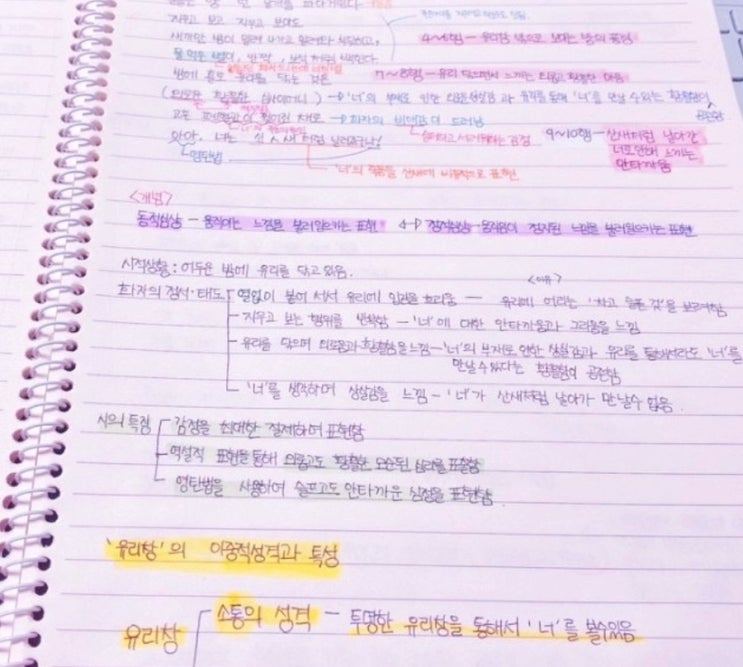 지우고 보고 지우고 보아도
4~6행 - 유리창 밖으로 보이는 밤의 풍경
새까만 밤이 밀려 나가고 밀려와 부딪히고,
물 먹은 별이, 반짝, 보석처럼 백힌다.
7~8행 - 유리 닦으면서 느끼는 외롭고 황홀한 마음
밤에 홀로 유리를 닦는 것은
외로운 황홀한 심사이어니 → '너'의 부재로 인한 외로움 상실감과 유리를 통해 '너'를 만날 수 있는 황홀함이 공존함
고운 폐혈관이 찢어진 채로 → 화자의 비애감이 드러남
9~10행 - 산새처럼 날아간 너로 인해 느끼는 안타까움
아아, 너는 산ㅅ새처럼 날러갔구나!
영탄법
'너'의 죽음을 산새에 비유적으로 표현
<개념>
동적심상 - 움직이는 느낌을 불러일으키는 표현 ↔ 정적심상 - 움직임이 정지된 느낌을 불러일으키는 표현
시적상황 : 어두운 밤에 유리를 닦고 있음.
<이유>
화자의 정서·태도 열없이 붙어 서서 유리에 입김을 흐리움 - 유리에 어리는 '차고 슬픈 것'을 보려하함
지우고 보는 행위를 반복함 - '너'에 대한 안타까움과 그리움을 느낌
유리를 닦으며 외로움과 황홀함을 느낌 - '너'의 부재로 인한 상실감과 유리를 통해서라도 '너'를
만날 수 있다는 황홀함이 공존함
'너'를 생각하며 상실감을 느낌 - '너'가 산새처럼 날아가 만날수 없음.
시의 특징 감정을 최대한 절제하여 표현함
역설적 표현을 통해 외롭고도 황홀한 모순된 심리를 표출함
영탄법을 사용하여 슬프고도 안타까운 심정을 표현함.
'유리창'의 이중적성격과 특성
유리창 소통의 성격 - 투명한 유리창을 통해서 '너'를 볼수있음